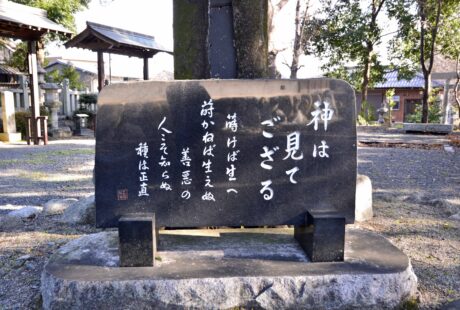 神は
見て
ござる
蒔けば生へ
蒔かねば生えぬ
善惡の
人こそ知らぬ
種は正直